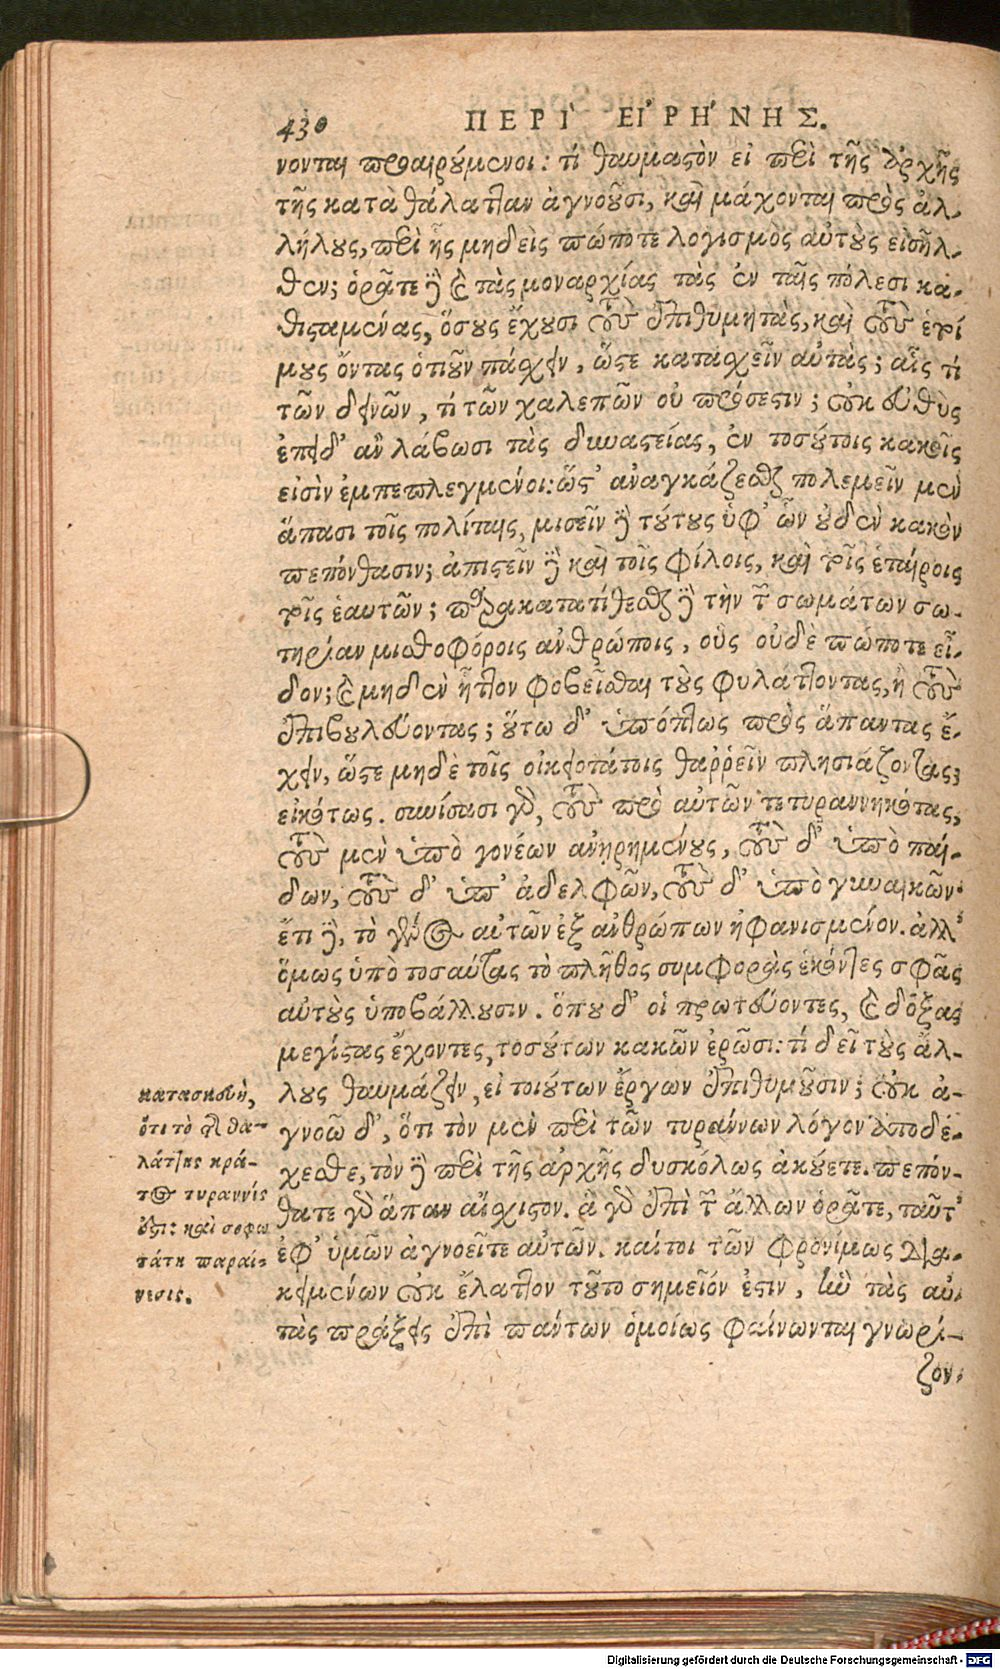 430 ΠΕΡΙ' ΕΙ'ΡΗ'ΝΗΣ.
νονται προαιρούμενοι: τί θαυμαστὸν εἰ περὶ τῆς ἀρχῆς
τῆς κατὰ θάλατταν ἀγνοοῦσι, καὶ μάχονται πρὸς ἀλ-
λήλους, περὶ ἧς μηδεὶς πώποτε λογισμὸς αὐτοὺς εἰσῆλ-
θεν; ὁρᾶτε δὲ καὶ τὰς μοναρχίας τὰς ἐν ταῖς πόλεσι κα-
θισταμένας, ὅσους ἔχουσι τοὺς ἐπιθυμητὰς, καὶ τοὺς ἑτοί
μους ὄντας ὁτιοῦν πάσχειν, ὥστε κατασχεῖν αὐτάς; αἷς τί
τῶν δεινῶν, τί τῶν χαλεπῶν οὐ πρόσεστιν; οὐκ εὐθὺς
ἐπειδ' ἂν λάβωσι τὰς δυναστείας, ἐν τοσούτοις κακοῖς
εἰσὶν ἐμπεπλεγμένοι: ὥστ' ἀναγκάζεσθαι πολεμεῖν μὲν
ἅπασι τοῖς πολίταις, μισεῖν δὲ τούτους ὑφ' ὧν οὐδὲν κακὸν
πεπόνθασιν; ἀπιστεῖν δὲ καὶ τοῖς φίλοις, καὶ τοῖς ἑταίροις
τοῖς ἑαυτῶν; παρακατατίθεσθαι δὲ τὴν τῶν σωμάτων σω-
τηρίαν μισθοφόροις ἀνθρώποις, οὓς οὐδὲ πώποτε εἶ-
δον; καὶ μηδὲν ἧττον φοβεῖσθαι τοὺς φυλάττοντας, ἢ τοὺς
ἐπιβουλεύοντας; οὕτω δ' ὑπόπτως πρὸς ἅπαντας ἔ-
χειν, ὥστε μηδὲ τοῖς οἰκειοτάτοις θαῤῥεῖν πλησιάζοντας;
εἰκότως. συνίσασι γὰρ, τοὺς πρὸ αὐτῶν τετυραννηκότας,
τοὺς μὲν ὑπὸ γονέων ἀνῃρημένους, τοὺς δ' ὑπὸ παί-
δων, τοὺς δ' ὑπ' ἀδελφῶν, τοὺς δ' ὑπὸ γυναικῶν·
ἔτι δὲ, τὸ γένος αὐτῶν ἐξ ἀνθρώπων ἠφανισμένον. ἀλλ'
ὅμως ὑπὸ τοσαύτας τὸ πλῆθος συμφορὰς ἑκόντες σφᾶς
αὐτοὺς ὑποβάλλουσιν. ὅπου δ' οἱ πρωτεύοντες, καὶ δόξας
μεγίστας ἔχοντες, τοσούτων κακῶν ἐρῶσι: τί δεῖ τοὺς ἄλ-
λους θαυμάζειν, εἰ τοιούτων ἔργων ἐπιθυμοῦσιν; οὐκ ἀ-
γνοῶ δ', ὅτι τὸν μὲν περὶ τῶν τυράννων λόγον ἀποδέ-
χεσθε, τὸν δὲ περὶ τῆς ἀρχῆς δυσκόλως ἀκούετε. πεπόν-
θατε γὰρ ἅπαν αἴσχιστον. ἃ γὰρ ἐπὶ τῶν ἄλλων ὁρᾶτε, ταῦτ'
ἐφ' ὑμῶν ἀγνοεῖτε αὐτῶν. καίτοι τῶν φρονίμως δια-
κειμένων οὐκ ἔλαττον τοῦτο σημεῖόν ἐστιν, ἢν τὰς αὐ-
τὰς πράξεις ἐπὶ πάντων ὁμοίως φαίνωνται γνωρί-
ζον-
κατασκευὴ,
ὅτι τὸ τῆς θα-
λάττης κρά-
τος τυραννίς
ἐστι: καὶ σοφω
τάτη παραί-
νεσις.
Digitalisierung gefördert durch die Deutsche Forschungsgemeinschaft - DFG